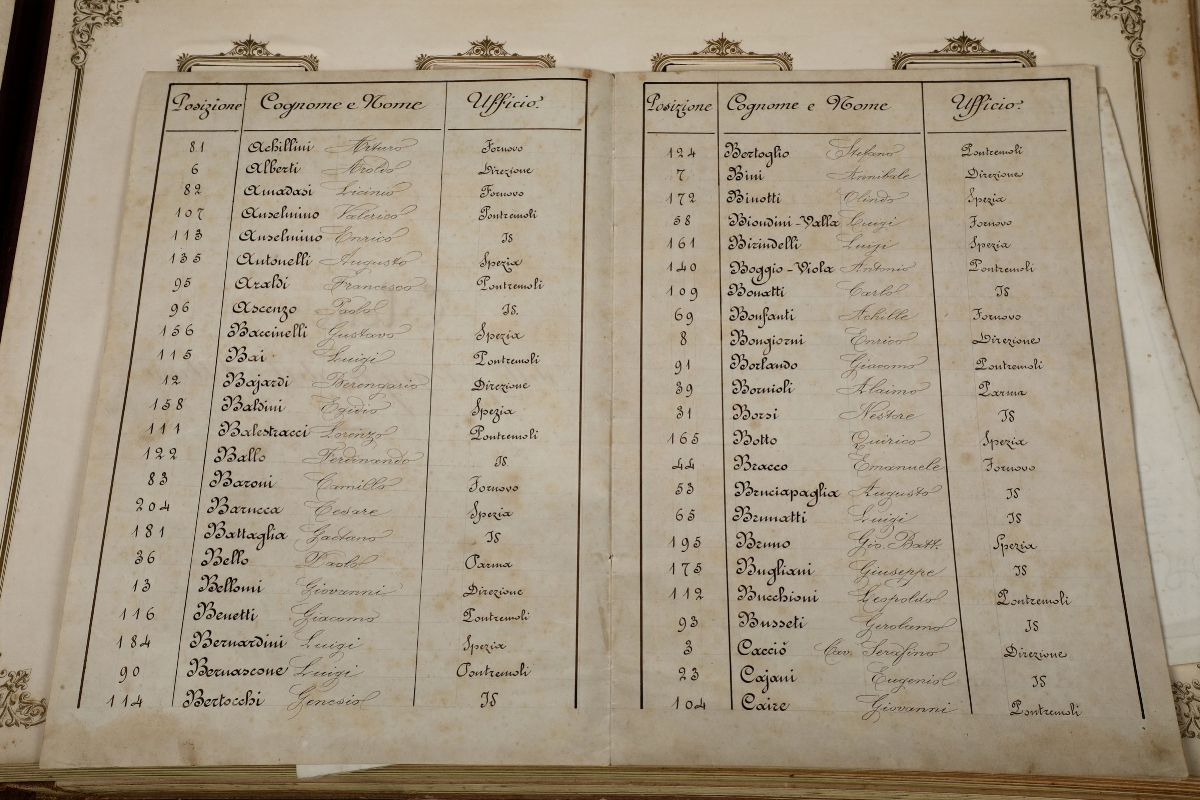 Posizione Cognome e Nome Ufficio
81 Achillini Arturo Fornovo
6 Alberti Aroldo Direzione
82 Amadasi Licinio Fornovo
107 Anselmino Valerico Pontremoli
113 Anselmino Enrico IS
135 Antonelli Augusto Spezia
95 Araldi Francesco Pontremoli
96 Ascenzo Paolo IS.
156 Baccinelli Gustavo Spezia
115 Bai Luigi Pontremoli
12 Bajardi Berengario Direzione
158 Baldini Egidio Spezia
111 Balestracci Lorenzo Pontremoli
122 Ballo Ferdinando IS
83 Baroni Camillo Fornovo
204 Barucca Cesare Spezia
181 Battaglia Gaetano IS
36 Bello Paolo Parma
13 Belloni Giovanni Direzione
116 Benetti Giacomo Pontremoli
184 Bernardini Luigi Spezia
90 Bernascone Luigi Pontremoli
114 Bertocchi Genesio IS
Posizione Cognome e Nome Ufficio
124 Bertoglio Stefano Pontremoli
7 Bini Annibale Direzione
172 Binotti Olindo Spezia
58 Biondini-Valla Luigi Fornovo
161 Birindelli Luigi Spezia
140 Boggio-Viola Antonio Pontremoli
109 Bonatti Carlo IS
69 Bonfanti Achille Fornovo
8 Bongiorni Enrico Direzione
91 Borlando Giacomo Pontremoli
39 Bornioli Alaimo Parma
31 Borsi Nestore IS
165 Botto Quirico Spezia
44 Bracco Emanuele Fornovo
53 Bruciapaglia Augusto IS
65 Brunatti Luigi IS
195 Bruno Gio. Batt. Spezia
175 Bugliani Giuseppe IS
112 Bucchioni Leopoldo Pontremoli
93 Busseti Gerolamo IS
3 Cacciò Cav. Serafino Direzione
23 Cajani Eugenio IS
104 Caire Giovanni Pontremoli